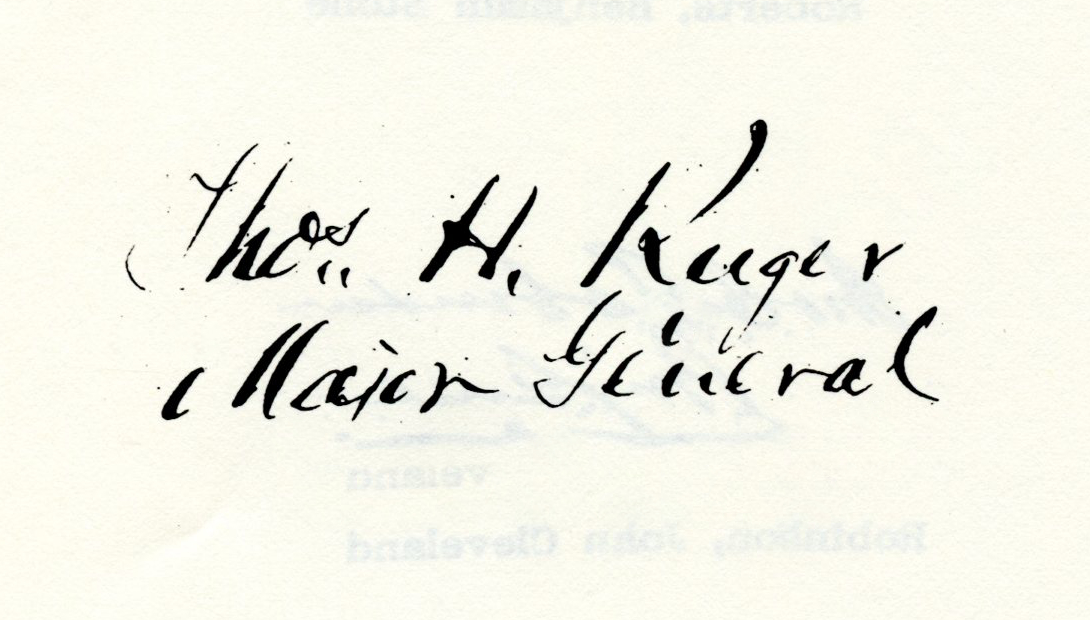 Thos. H. Ruger
Major General